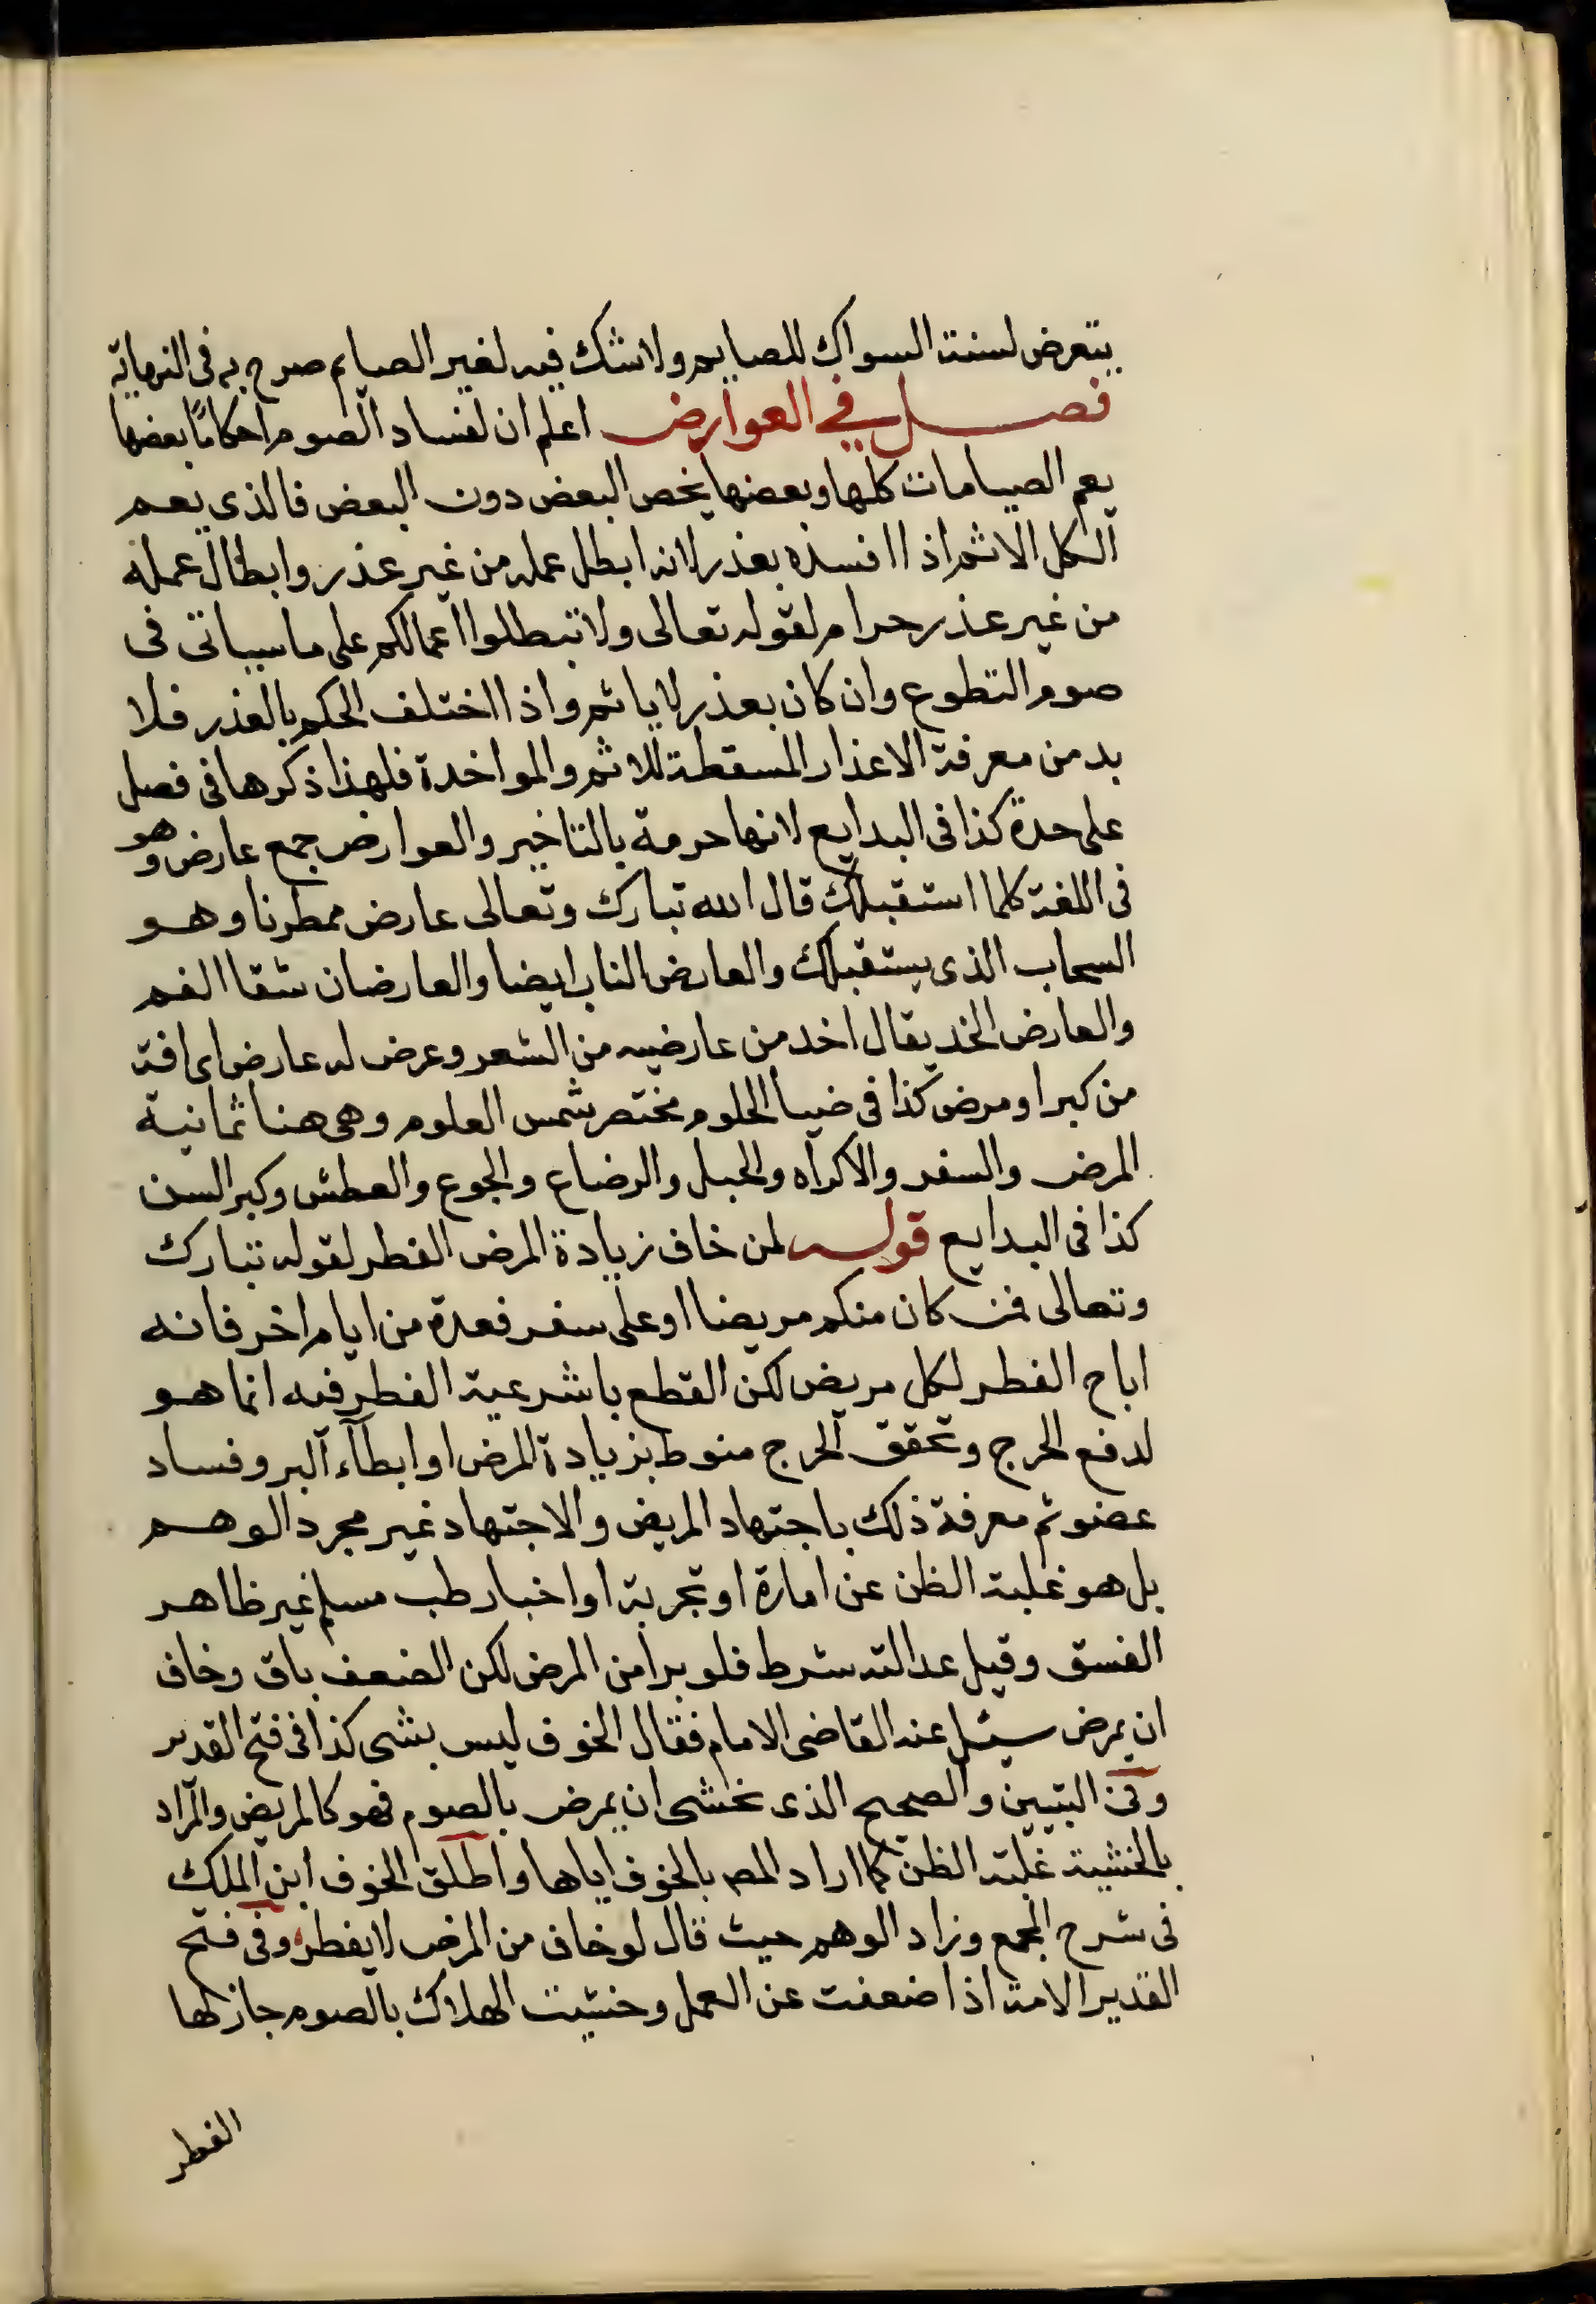 يتعرض لسنة السواك للصايم ولاشك فيه لغير الصيام صرح به في النهاية
فصل في العوارض اعلم ان لفساد الصوم احكامًا بعضها
يعم الصيامات كلها وبعضها يخص البعض دون البعض فالذي يعم
الكل الاثم اذا افسده بعذر لانه ابطل عمله من غير عذر وابطال عمله
من غير عذر حرام لقوله تعالى ولا تبطلوا اعمالكم على ما سياتى فى
صوم التطوع وان كان بعذر لا ياثم واذا اختلف الحكم بالعذر فلا
بد من معرفة الاعذار المسقطة للاثم والمواخدة فلهذا ذكرها فى فصل
على حدة كذا فى البدايع لانها حرمة بالتاخير والعوارض جمع عارض وهو
فى اللغة كلما استقبلك قال الله تبارك وتعالى عارض ممطرنا وهو
السحاب الذى يستقبلك والعارض الناب ايضا والعارضان شقا الفم
والعارض الخد يقال اخد من عارضيه من الشعر وعرض له عارض اى افة
من كبر او مرض كذا فى ضيا الحلوم مختصر شمس العلوم وهى هنا ثمانية
المرض والسفر والاكراه والحبل والرضاع والجوع والعطش وكبر السن
كذا فى البدايع قوله لمن خاف زيادة المرض الفطر لقوله تبارك
وتعالى فمن كان منكم مريضا او على سفر فعدة من ايام اخر فانه
اباح الفطر لكل مريض لكن القطع باشرعية الفطر فيه انما هو
لدفع الحرج وتحقق الحرج منوط بزيادة المرض او ابطآء البر وفساد
عضو ثم معرفة ذلك باجتهاد المريض والاجتهاد غير مجرد الوهم
بل هو غلبة الظن عن امارة او تجربة او اخبار طب مسلم غير ظاهر
الفسق وقيل عدالته شرط فلو برا من المرض لكن الضعف باق وخاف
ان يمرض سئل عنه القاضى الامام فقال الخوف ليس بشى كذا فى فتح القدير
وفى التبيين والصحيح الذى يخشى ان يمرض بالصوم فهو كالمريض والمراد
بالخشية غلبة الظن كما اراد المص بالخوف اياها واطلق الخوف ابن الملك
فى شرح المجمع وزاد الوهم حيث قال لو خاف من المرض لا يفطر وفى فتح
القدير الامة اذا ضعفت عن العمل وخشيت الهلاك بالصوم جاز لها
الفطر